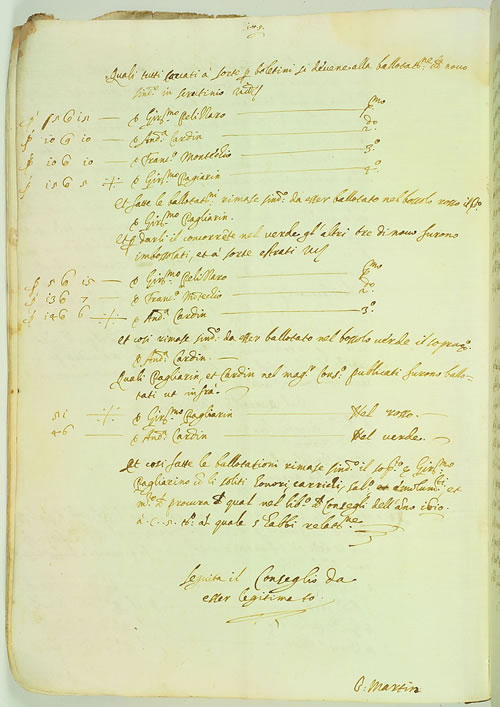 Quali tutti cavati à sorte p boletini si devene alla ballotat.ne de novo
sind.co in scrutinio
p 15 6 15 — D Gir.mo Pelillaro — p.mo
p 10 6 10 — D And.a Cardin — 2.do
p 10 6 10 — D Franc.o Montechio — 3.o
p 15 6 5 -:- D Gir.mo Pagiarin — 4.o
et fatte le ballotat.ni rimase sind.o da esser ballotato nel bossolo rosso il
D Gir.mo Pagliarin.
Et p darli il concorrēte nel verde gl'altri tre di novo furono
imbossolati, et à sorte estrati
p 5 6 15 — D Gir.mo Pelillaro — p.mo
p 13 6 7 — D Franc.o — 2.o
p 14 6 6 -:- D And.a Cardin — 3.o
et cosi rimase sind.o da esser ballotato nel bossolo verde il
D And.a Cardin.
Quali Pagliarin, et Cardin nel mag.r Cons.o publicati furono ballo-
tati ut infra.
51 -:- D Gir.mo Pagliarin Nel rosso.
46 — D And.a Cardin Nel verde.
Et cosi fatte le ballotationi rimase sind.o il D Gir.mo
Pagliarino cō li soliti honori carrichi, et
procura qual nel lib.o Consegli dell'āno 1610.
à c. 5. qual
Seguita il Conseglio da
esser legitimato.
B. Martin